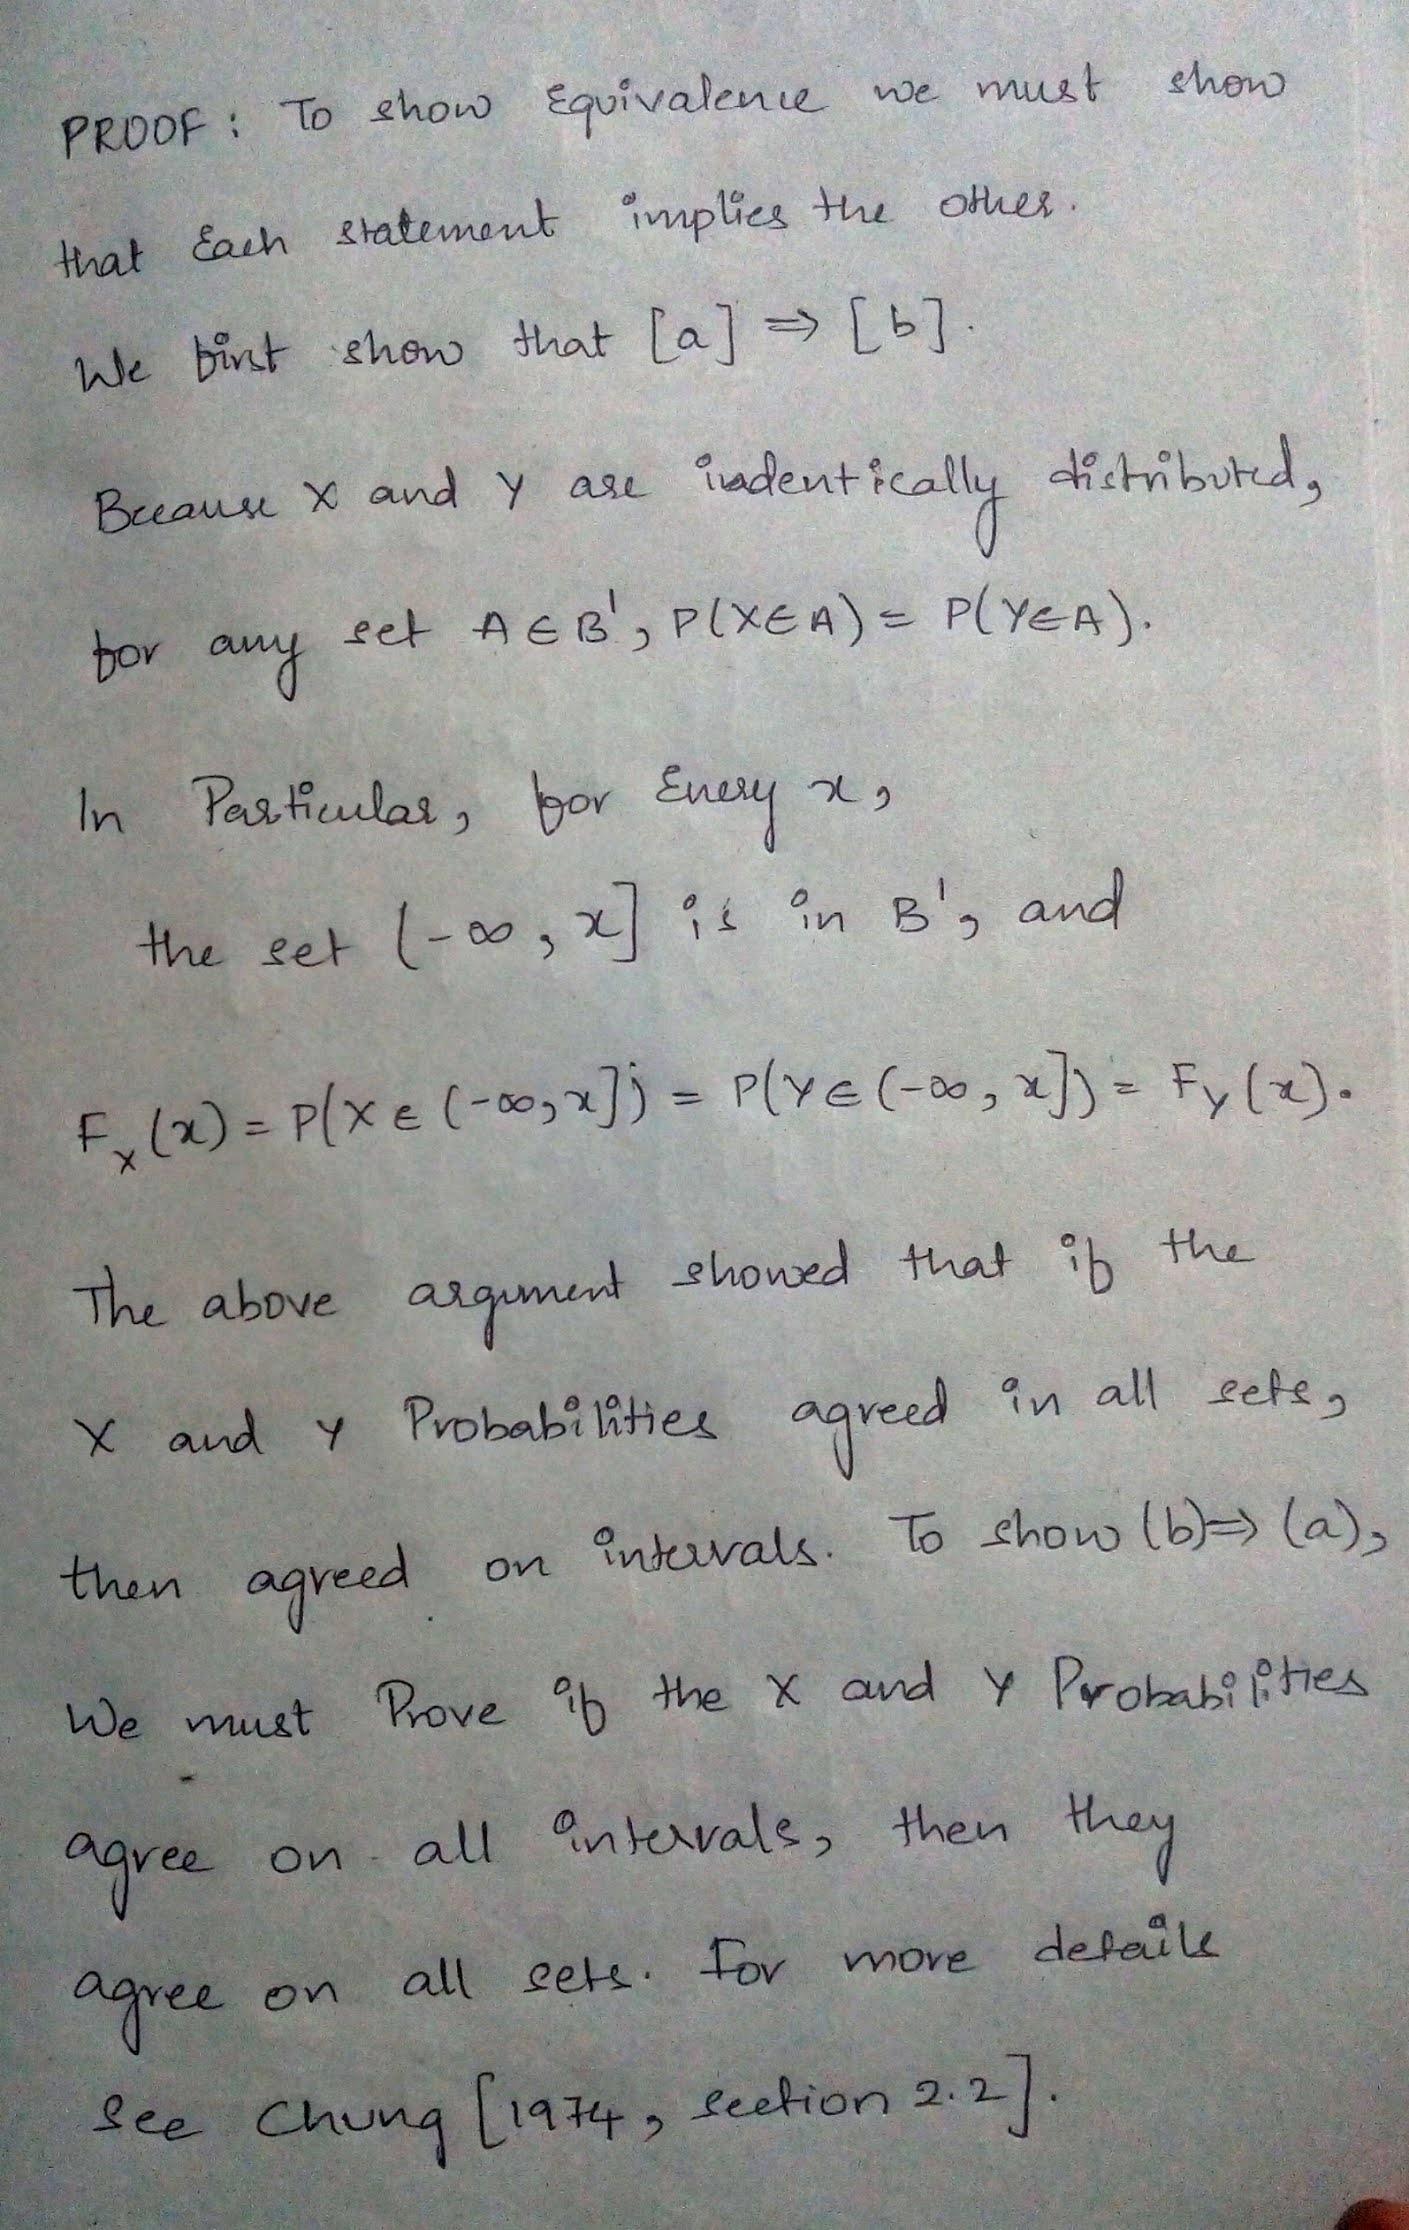 PROOF: To show Equivalence we must show
that Each statement implies the other.
We first show that [a] ⇒ [b].
Because X and Y are indentically distributed,
for any set A ∈ B', P(X∈A) = P(Y∈A).
In Particular, for Every x,
the set (-∞, x] is in B', and
F_X(x) = P(X ∈ (-∞, x]) = P(Y ∈ (-∞, x]) = F_Y(x).
The above argument showed that if the
X and Y Probabilities agreed in all sets,
then agreed on intervals. To show (b) ⇒ (a),
We must Prove if the X and Y Probabilities
agree on all intervals, then they
agree on all sets. For more details
see Chung [1974, section 2.2].